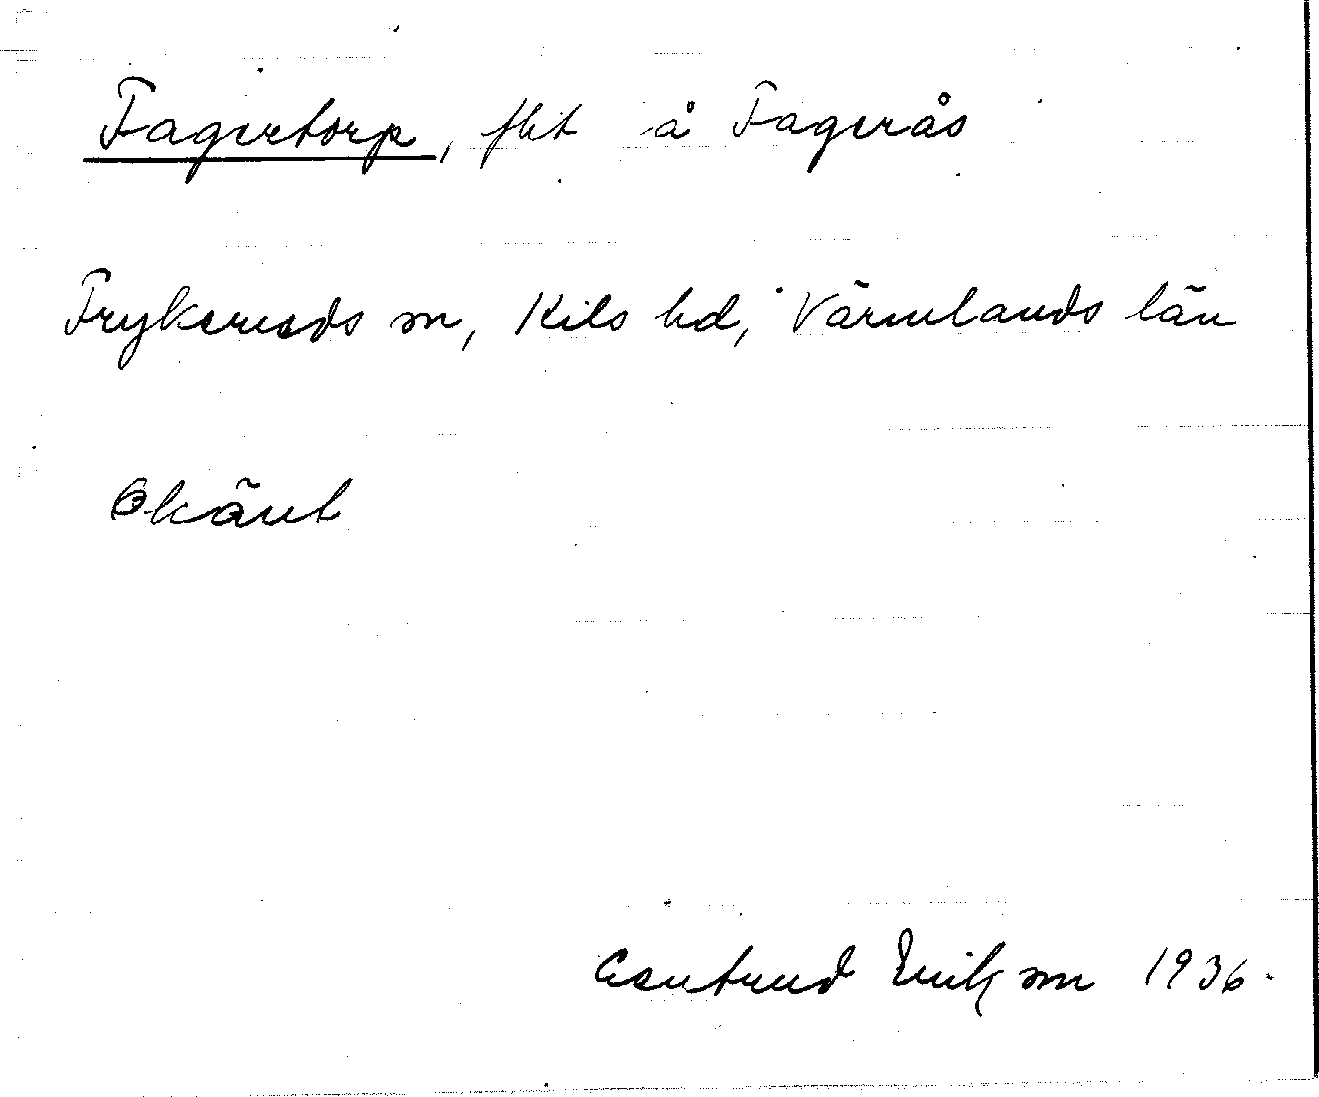 Fagertorp, fht å Fagerås
Frykeruds sn, Kils hd, Värmlands län
Okänt
Erikson 1936.